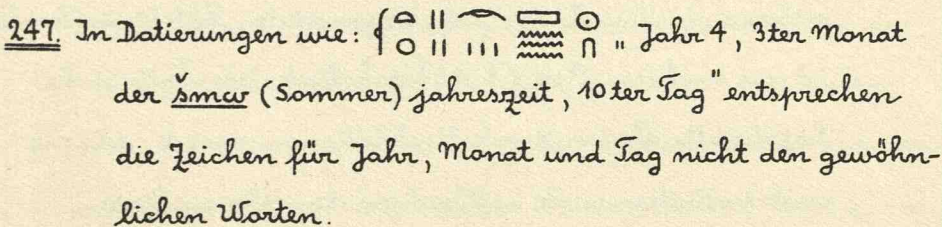 247. In Datierungen wie: 𓆳𓏏𓊗 𓏽 𓇹 𓏼 𓈙 𓈗 𓇳 𓎆 „Jahr 4, 3ter Monat
der šmw (Sommer) jahreszeit, 10ter Tag" entsprechen
die Zeichen für Jahr, Monat und Tag nicht den gewöhn-
lichen Worten.